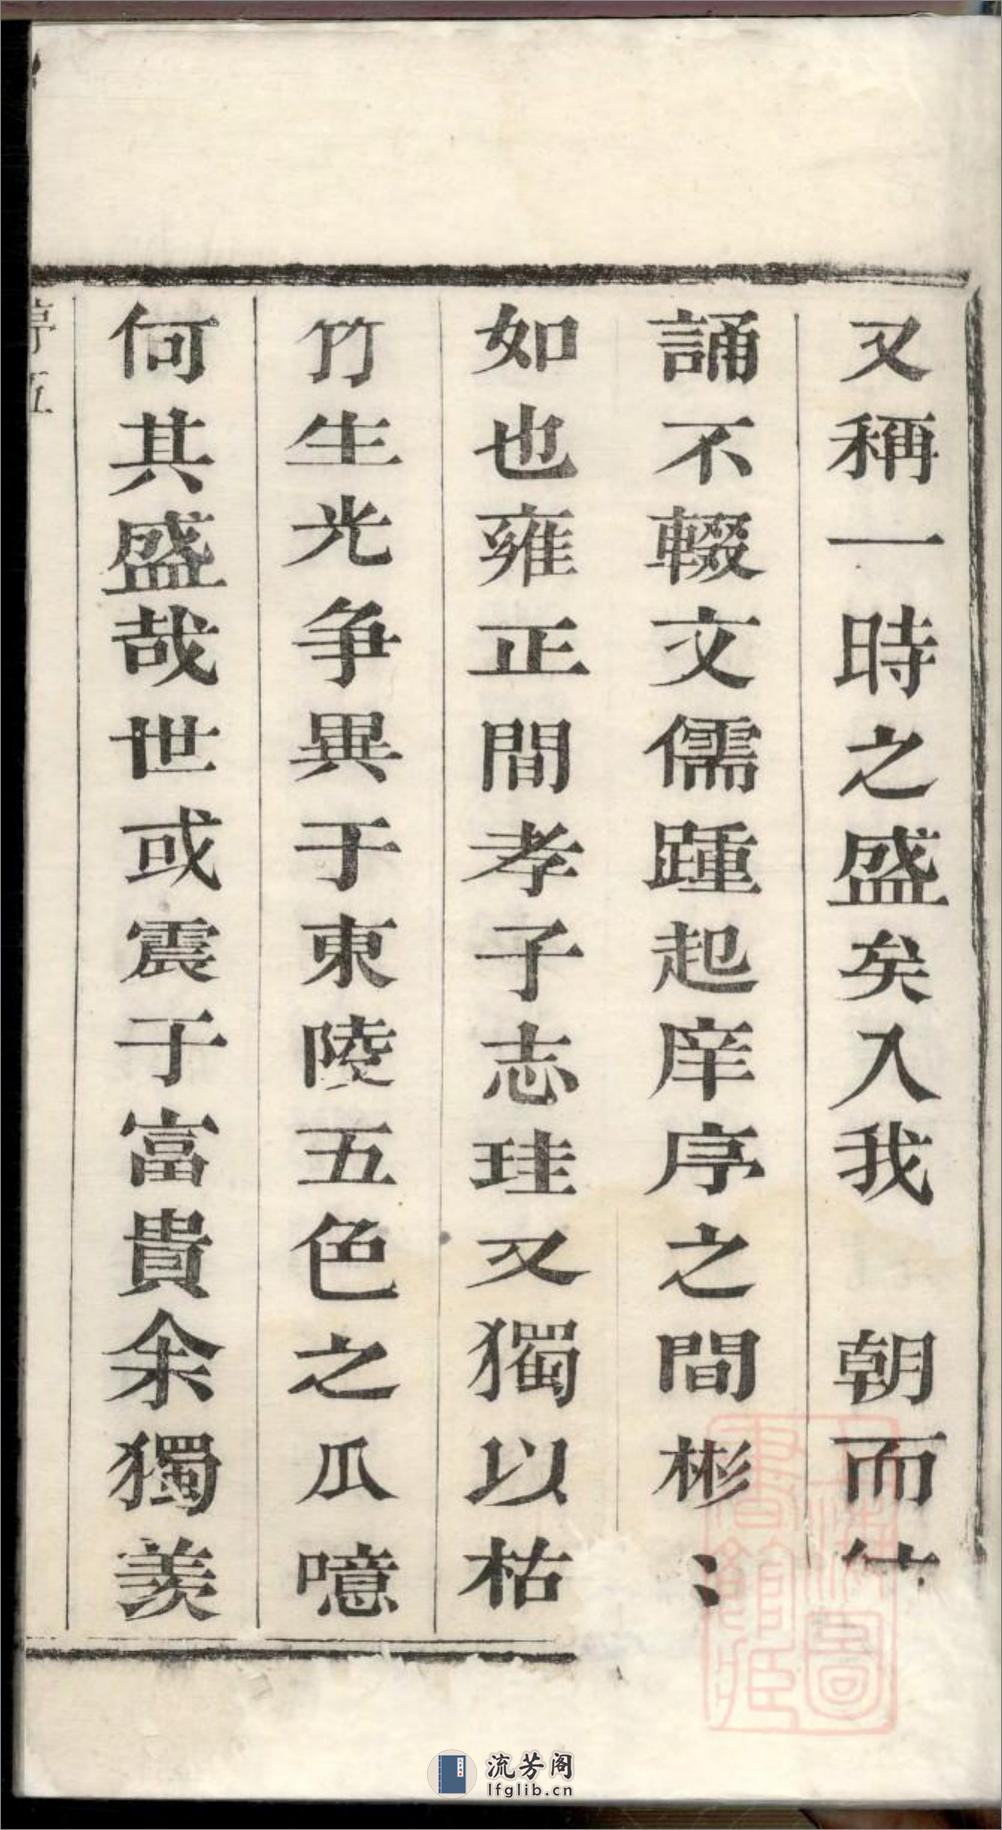 又稱一時之盛矣入我　朝而
誦不輟文儒踵起庠序之間彬〻
如也雍正間孝子志珪又獨以枯
竹生光争異于東陵五色之瓜噫
何其盛哉世或震于富貴余獨羡
五
流芳阁
lfglib.cn